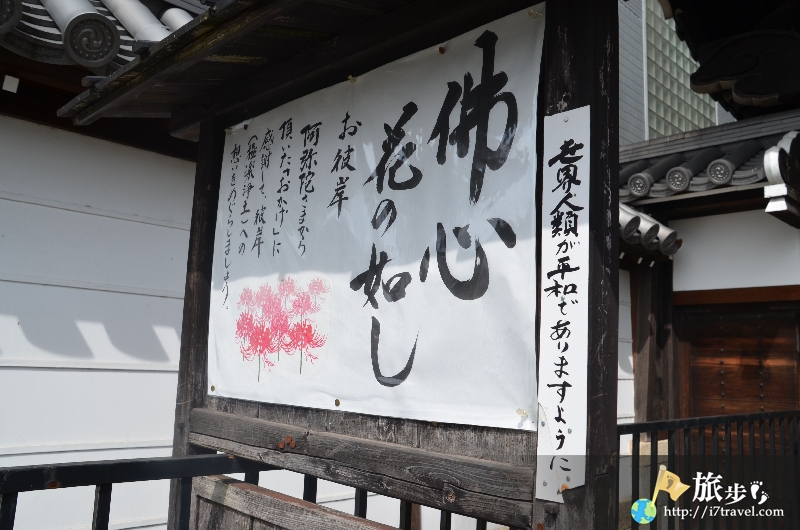 世界人類が平和でありますように
佛心
花の如し
お彼岸
阿弥陀さまから
頂いた「おかげ」に
感謝して、彼岸
(極楽浄土)への
想いをめぐらしましょう。
旅步
http://i7travel.com